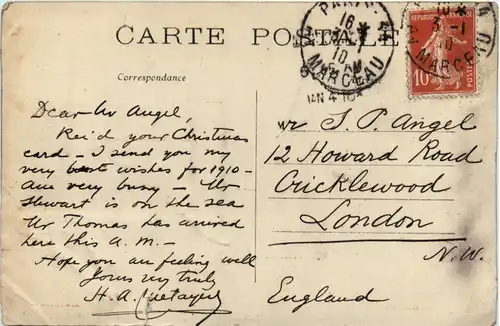 CARTE POSTALE
Correspondance
Dear Mr Angel,
Rec'd your Christmas
card – I send you my
very best wishes for 1910 –
am very busy – Mr
Stewart is on the sea
Mr Thomas has arrived
here this A.M. –
Hope you are feeling well
Yours very truly
H. A.
Mr S. P. Angel
12 Howard Road
Cricklewood
London
N.W.
England
PARIS
16
3-1
10
MARCEAU
JAN 4 10
10
3-1
10
MARCEAU
REPUBLIQUE FRANÇAISE
10